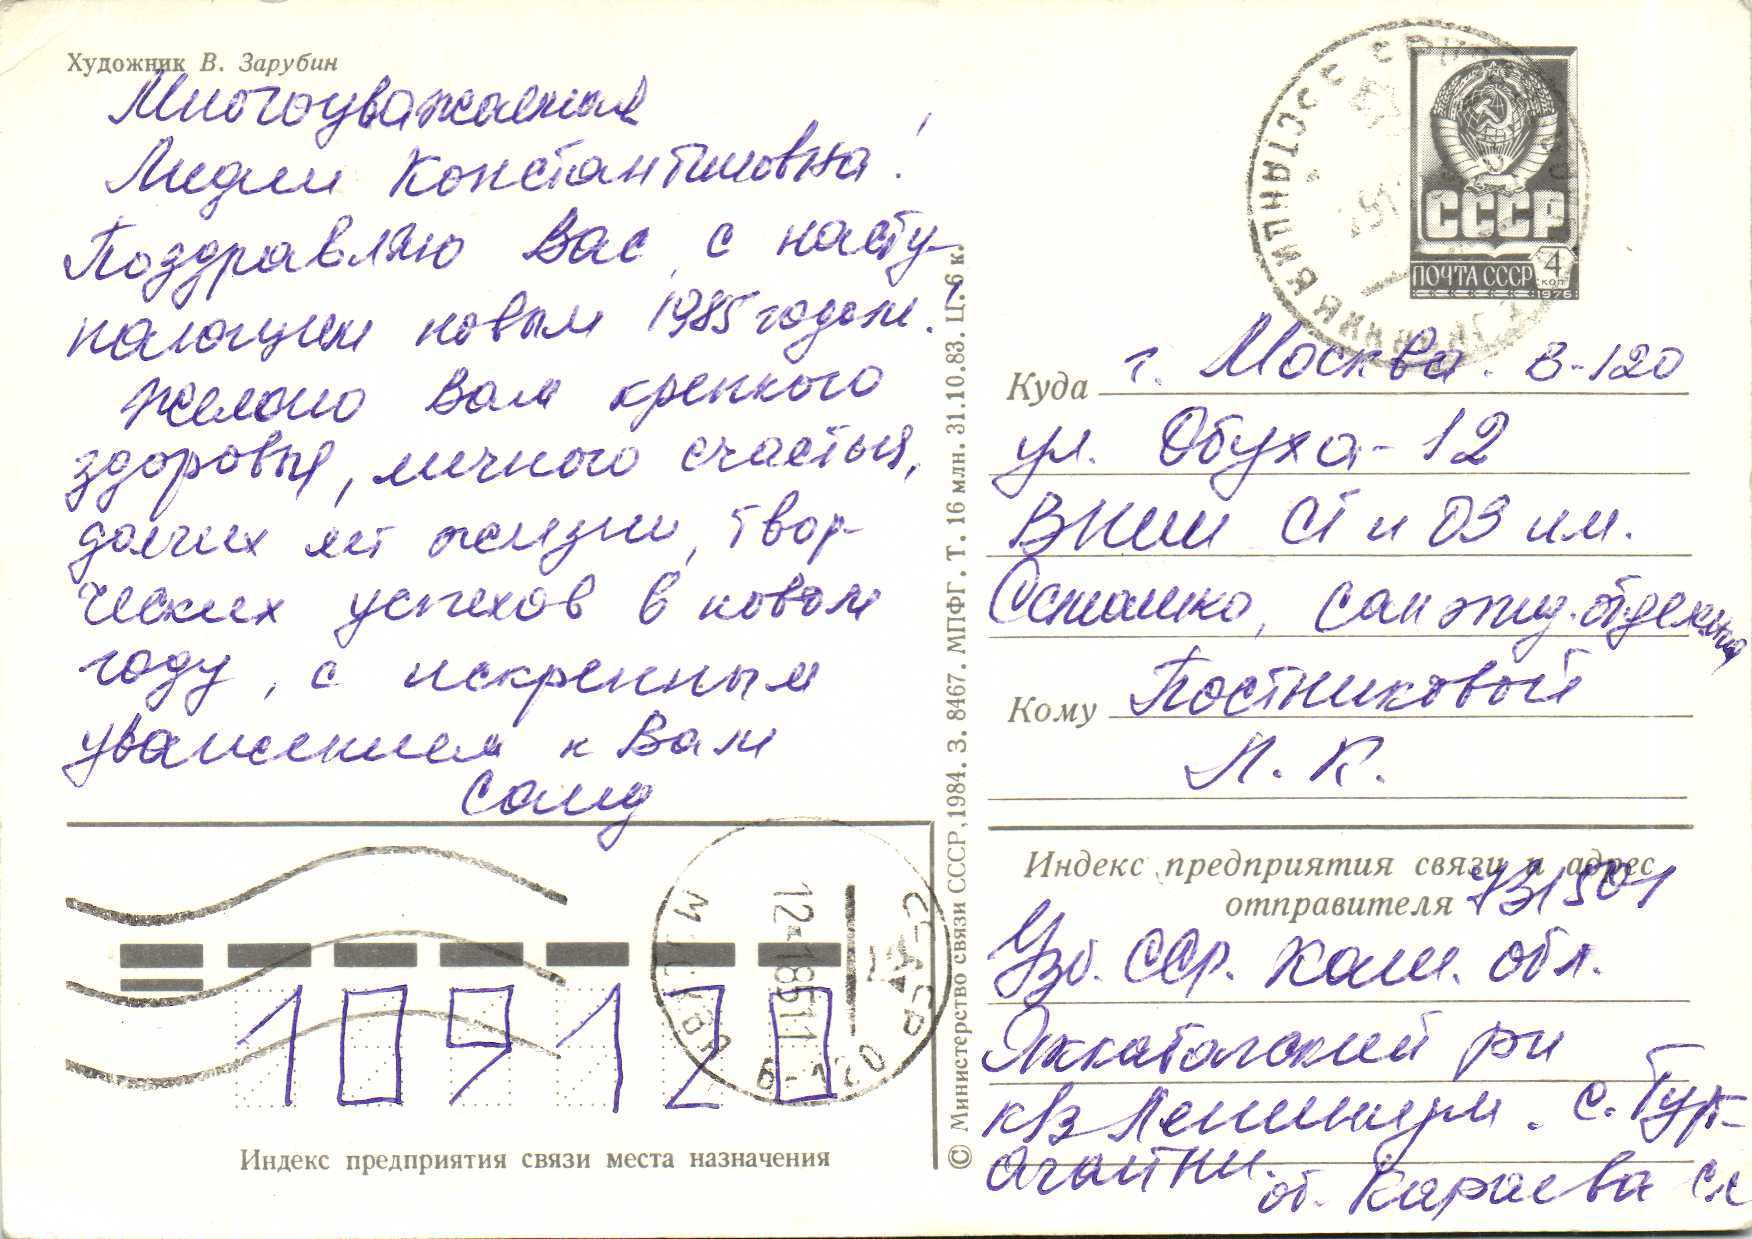 Художник В. Зарубин
Многоуважаемая
Лидия Константиновна!
Поздравляю Вас с насту-
пающим новым 1985 годом!
Желаю Вам крепкого
здоровья, личного счастья,
долгих лет жизни, твор-
ческих успехов в новом
году, с искренным
уважением к Вам
Саид
СССР
ПОЧТА СССР
4
коп
1976
Куда г. Москва. В-120
ул. Обуха-12
ВНИИ СГ и ОЗ им.
Семашко, сан эпид. отделения
Кому Постниковой
Л. К.
Индекс предприятия связи и адрес
отправителя 731501
Узб. ССР. Каш. обл.
Яккабагский р-н
к/з Ленинизм. с. Тур-
от. Караева
© Министерство связи СССР, 1984. З. 8467. МПФГ. Т. 16 млн. 31.10.83. Ц. 6 к.
МОСКВА В-120
СССР
109120
Индекс предприятия связи места назначения